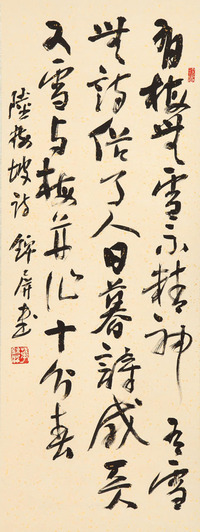 有梅無雪不精神 有雪
無詩俗了人日暮詩成天
又雪与梅并作十分春
陸梅坡詩 錦屏書